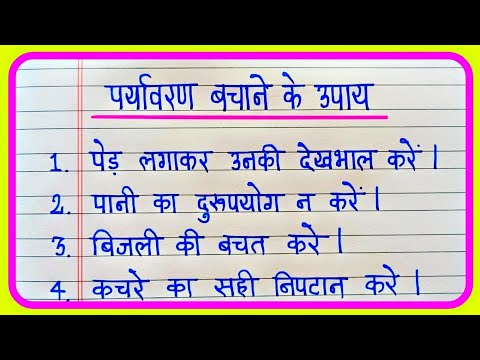 पर्यावरण बचाने के उपाय
1. पेड़ लगाकर उनकी देखभाल करें।
2. पानी का दुरुपयोग न करें।
3. बिजली की बचत करे।
4. कचरे का सही निपटान करे।